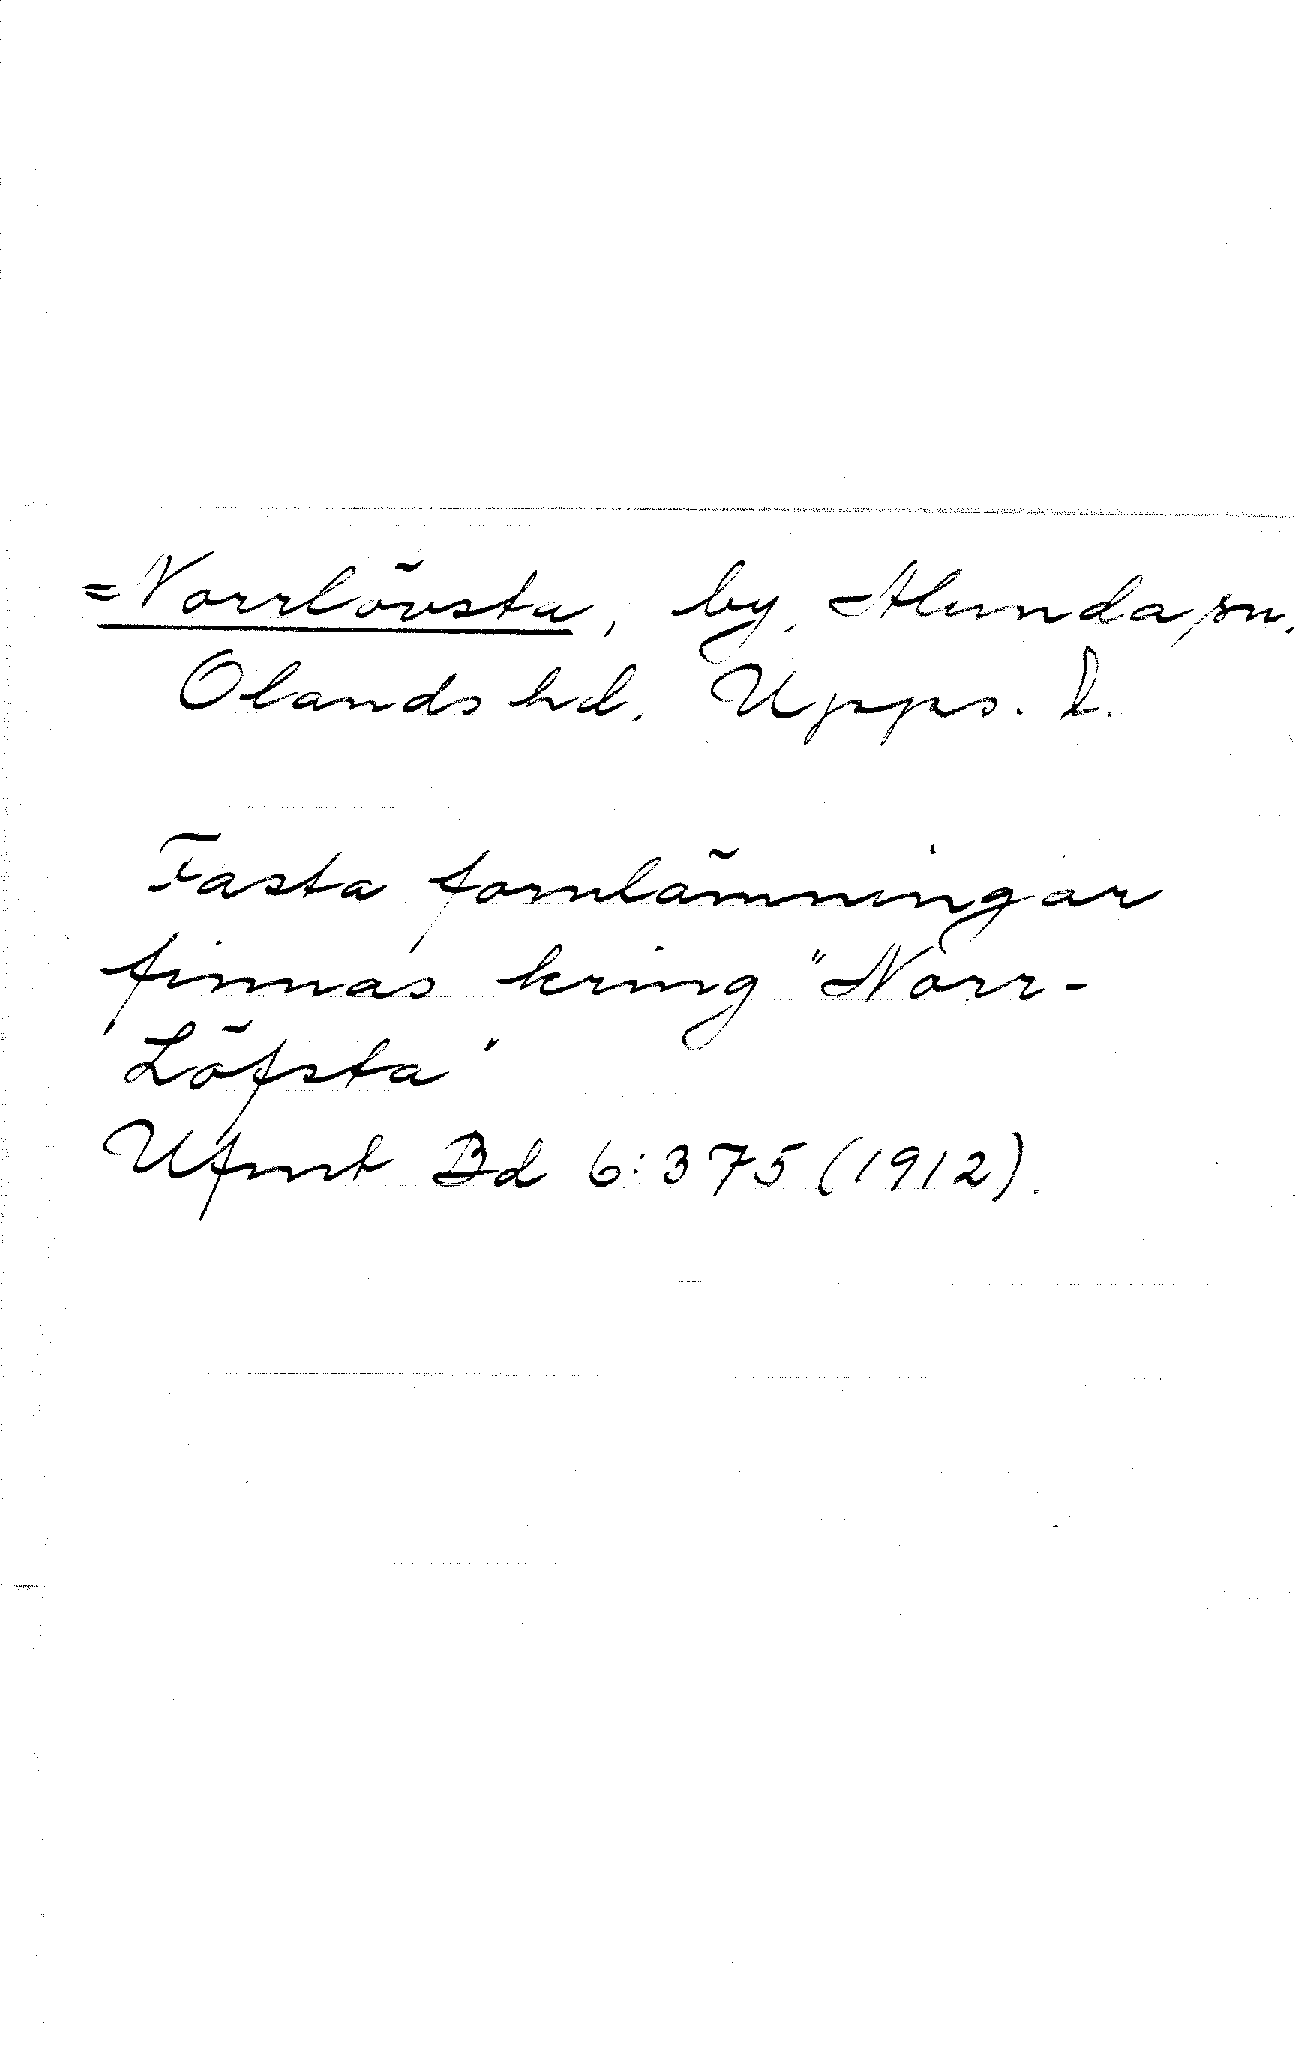 =Norrlövsta, by, Alunda sn.
Olands hd. Upps. l.
Fasta fornlämningar
finnas kring "Norr-
Löfsta"
Ufmt Bd 6:375 (1912).